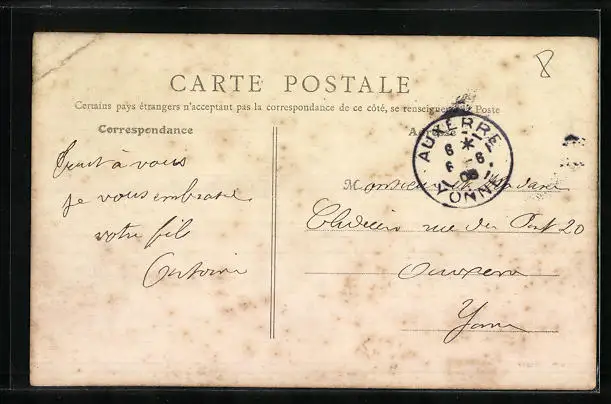 8
CARTE POSTALE
Certains pays étrangers n'acceptant pas la correspondance de ce côté, se renseigner Poste
Correspondance
AUXERRE
6 * 6
6 - 6
08
YONNE
Tout à vous
je vous embrasse
votre fils
Antoine
Monsieur et Madame
rue du Pont 20
Auxerre
Yonne